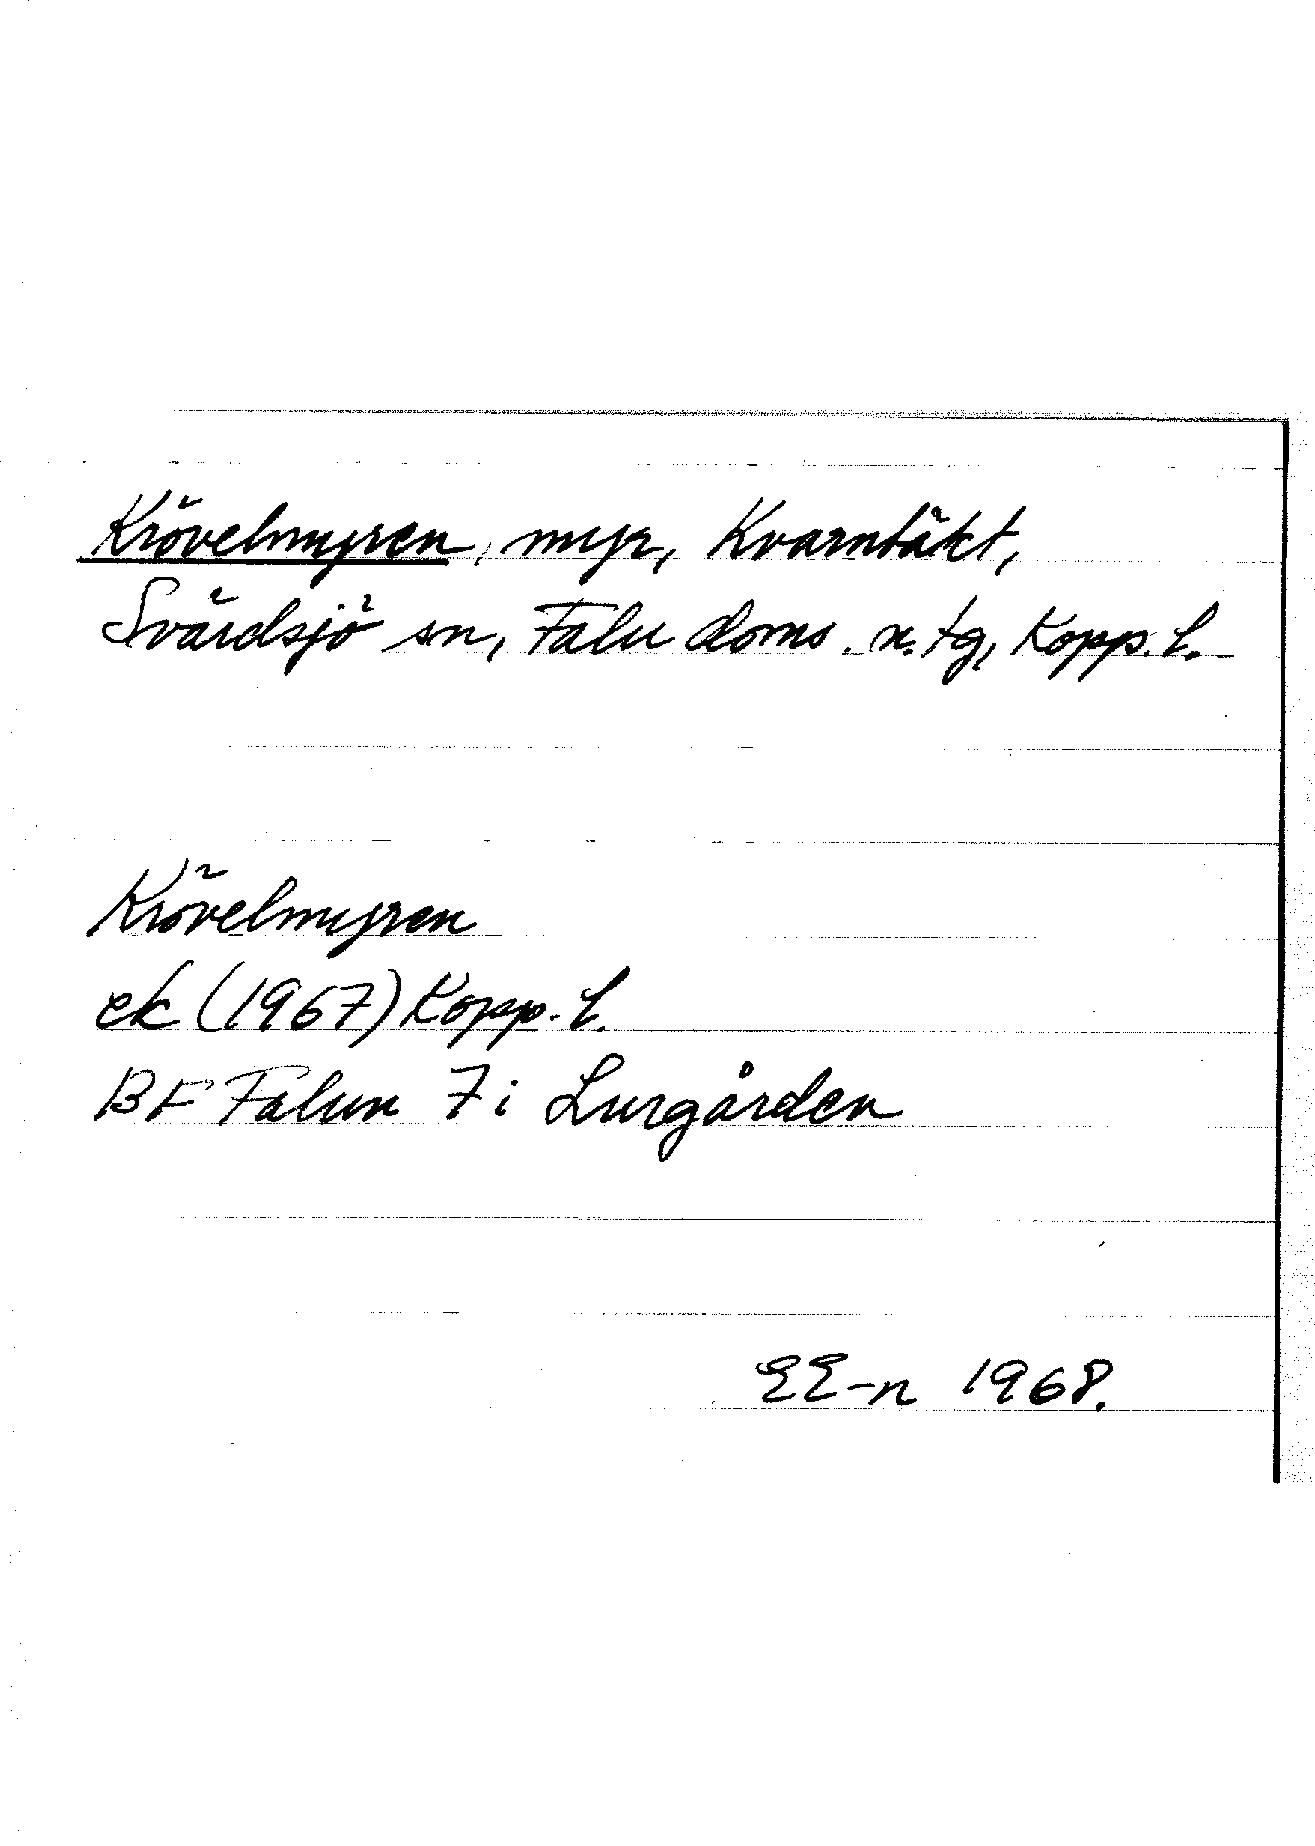 Krövelmyren, myr, Kvarntäkt,
Svärdsjö sn, Falu doms. n. tg, Kopp. l.
Krövelmyren
ek (1967) Kopp. l.
BF Falun 7i Lurgården
EE-n 1968.